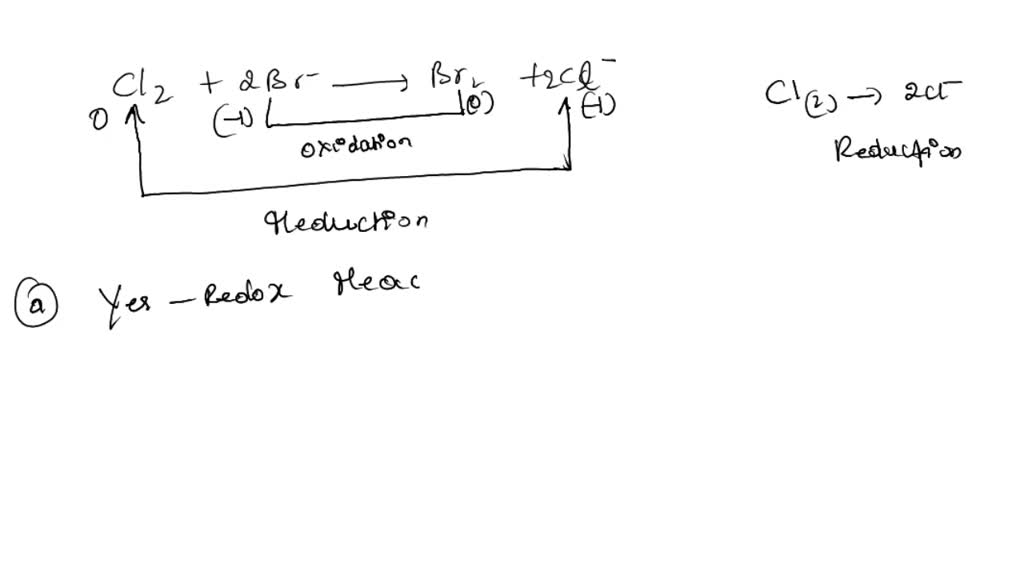 Cl2 + 2Br⁻ → Br2 + 2Cl⁻
0 (-1) (0) (-1)
oxidation
Reduction
Cl(2) → 2Cl⁻
Reduction
(a) Yes - Redox Reac